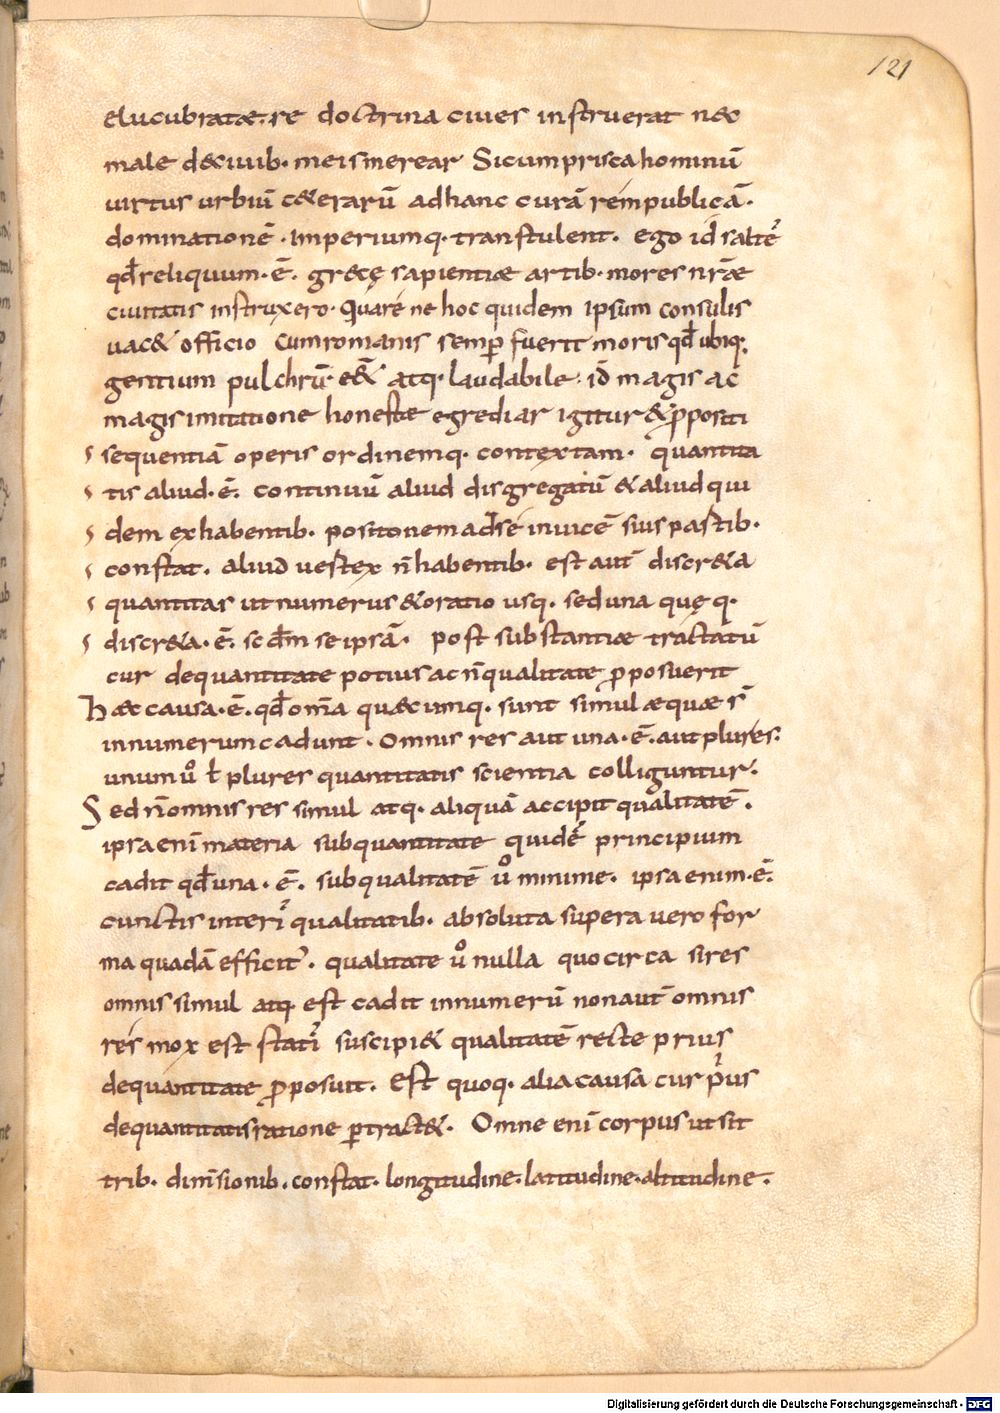 121
elucubratae re doctrina ciues instruerat nec
male d&ciuib· meis merear Sicum prisca hominū
uirtus urbiū c&erarū adhanc curā rempublicā·
dominationē · Imperiumq· transtulent· ego id saltē
qđ reliquum·ē· grecę sapientiae artib· mores nr̄ae
ciuitatis instruxero· Quare ne hoc quidem ipsum consulis
uac& officio cumromanis semp̄ fuerit moris qđ ubiq·
gentium pulchrū e&̄ atq· laudabile· id magis ac
magis imitatione honestae egrediar igitur & p̄positi
sequentiā operis ordinemq· contextam· quantita
tis aliud·ē· continuū aliud disgregatū & aliud qui
dem exhabentib· positonem adse inuicē suis pastib·
constat· aliud uestex n̄ habentib· est aut̄ discr&a
quantitas ut numerus & oratio usq· sed una quę q·
discr&a·ē· scđm se ipsā· post substantiae tractatū
cur dequantitate potius ac n̄ qualitate p̄posuerit
Haec causa·ē· qđ om̄a quaecumq· sunt simul aequae s̄
innumerum cadunt· Omnis res aut una·ē· aut plures·
unum ůo ł plures quantitatis scientia colliguntur·
Sed n̄ omnis res simul atq· aliquā accipit qualitatē·
ipsa enī materia subquantitate quidē principium
cadit qđ una·ē· subqualitatē ůo minime· ipsa enim·ē·
cunctis interī qualitatib· absoluta supera uero for
ma quadā efficit᾽· qualitate ůo nulla quocirca sires
omnis simul atq est cadit innumerū non aut̄ omnis
res mox est statī suscipi& qualitatē recte prius
dequantitate p̄posuit· Est quoq· alia causa cur p̄us
dequantitatis ratione p̄tract&· Omne enī corpus ut sit
trib· dim̄sionib· constat· longitudine· latitudine· altitudine·
Digitalisierung gefördert durch die Deutsche Forschungsgemeinschaft - DFG